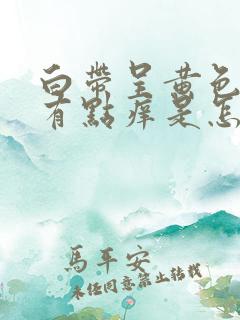 白帶呈黃色
有點痒是怎
馬平安
未经同意禁止转载